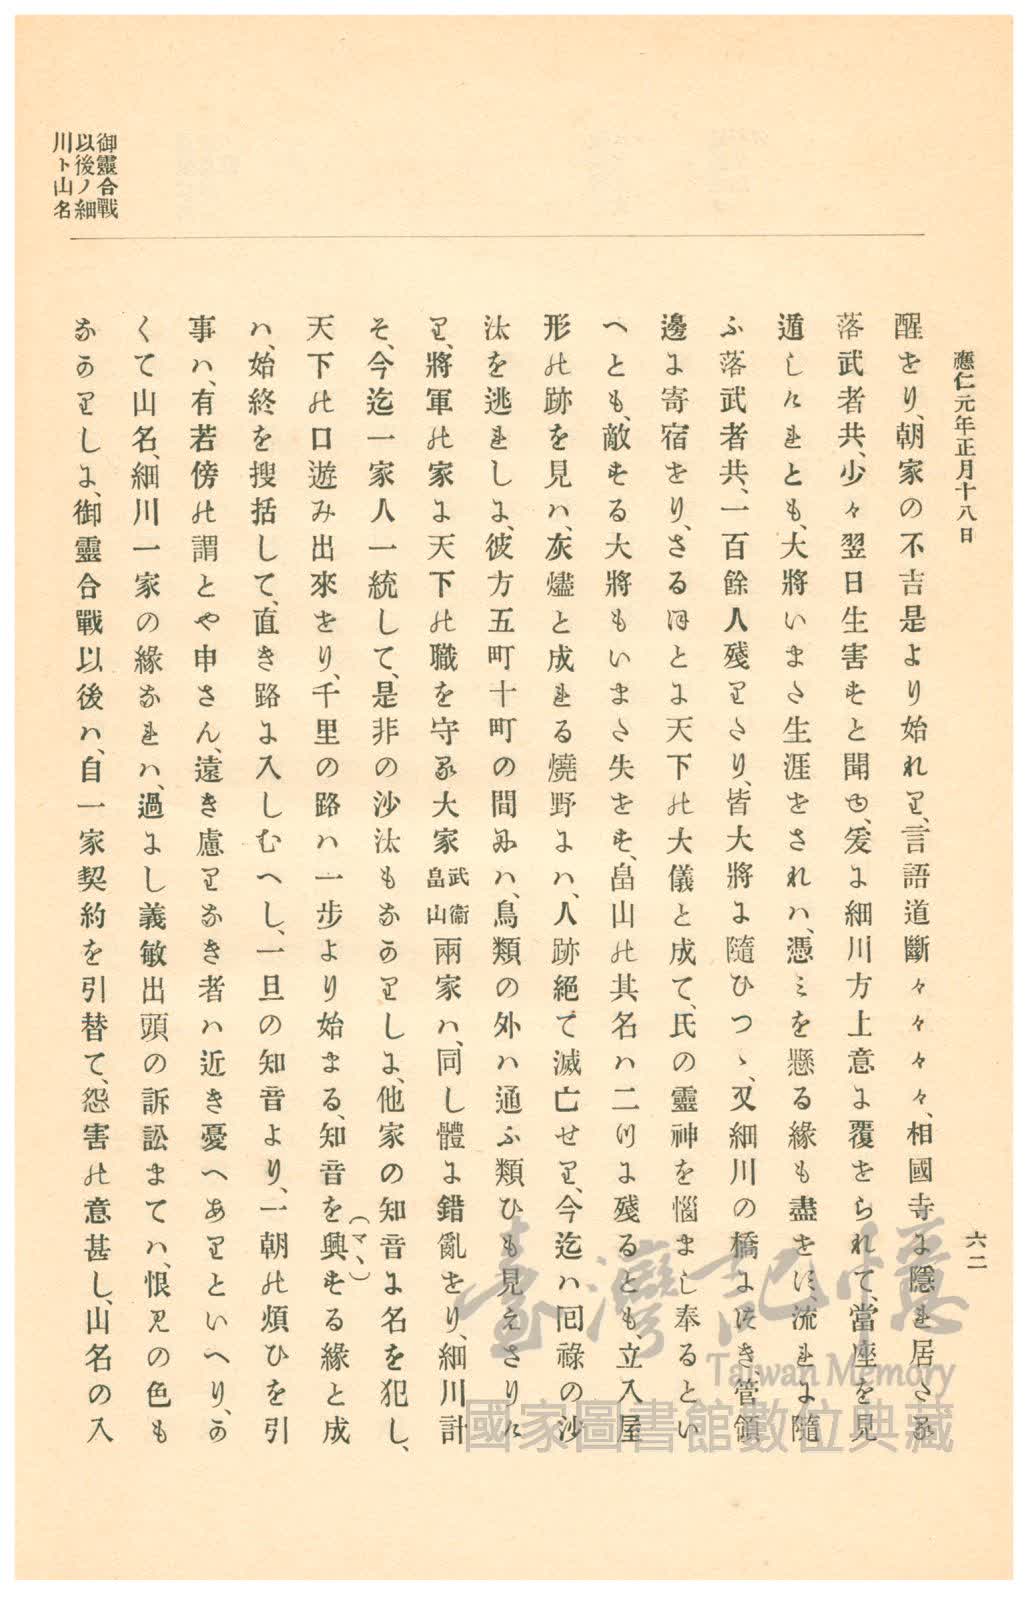 應仁元年正月十八日
六二
醒をり、朝家の不吉是より始れり、言語道斷々々々々、相國寺に隱れ居たる
落武者共、少々翌日生害すと聞也、爰に細川方上意に覆をられて、當座を見
遁しけれとも、大將いまた生涯をされハ、憑ミを懸る緣も盡をに、流れに隨
ふ落武者共、一百餘人殘りたり、皆大將に隨ひつゝ、又細川の橋につき、管領
邊に寄宿をり、さるほとに天下の大儀と成て、氏の靈神を惱まし奉るとい
へとも、敵する大將もいまた失をす、畠山の其名ハ二つに殘るとも、立入屋
形の跡を見ハ、灰燼と成れる燒野にハ、人跡絕て滅亡せり、今迄ハ囘祿の沙
汰を逃れしに、彼方五町十町の間みハ、鳥類の外ハ通ふ類ひも見えさりけ
り、將軍の家に天下の職を守る大家武衞畠山兩家ハ、同し體に錯亂をり、細川計
そ、今迄一家人一統して、是非の沙汰もなかりしに、他家の知音に名を犯し、
天下の口遊み出來をり、千里の路ハ一步より始まる、知音を興(マヽ)する緣と成
ハ、始終を搜括して、直き路に入しむへし、一旦の知音より、一朝の煩ひを引
事ハ、有若傍の謂とや申さん、遠き慮りなき者ハ近き憂へありといへり、か
くて山名、細川一家の緣なれハ、過にし義敏出頭の訴訟まてハ、恨みの色も
なかりしに、御靈合戰以後ハ、自一家契約を引替て、怨害の意甚し、山名の入
御靈合戰
以後ノ細
川ト山名
臺灣記憶
Taiwan Memory
國家圖書館數位典藏